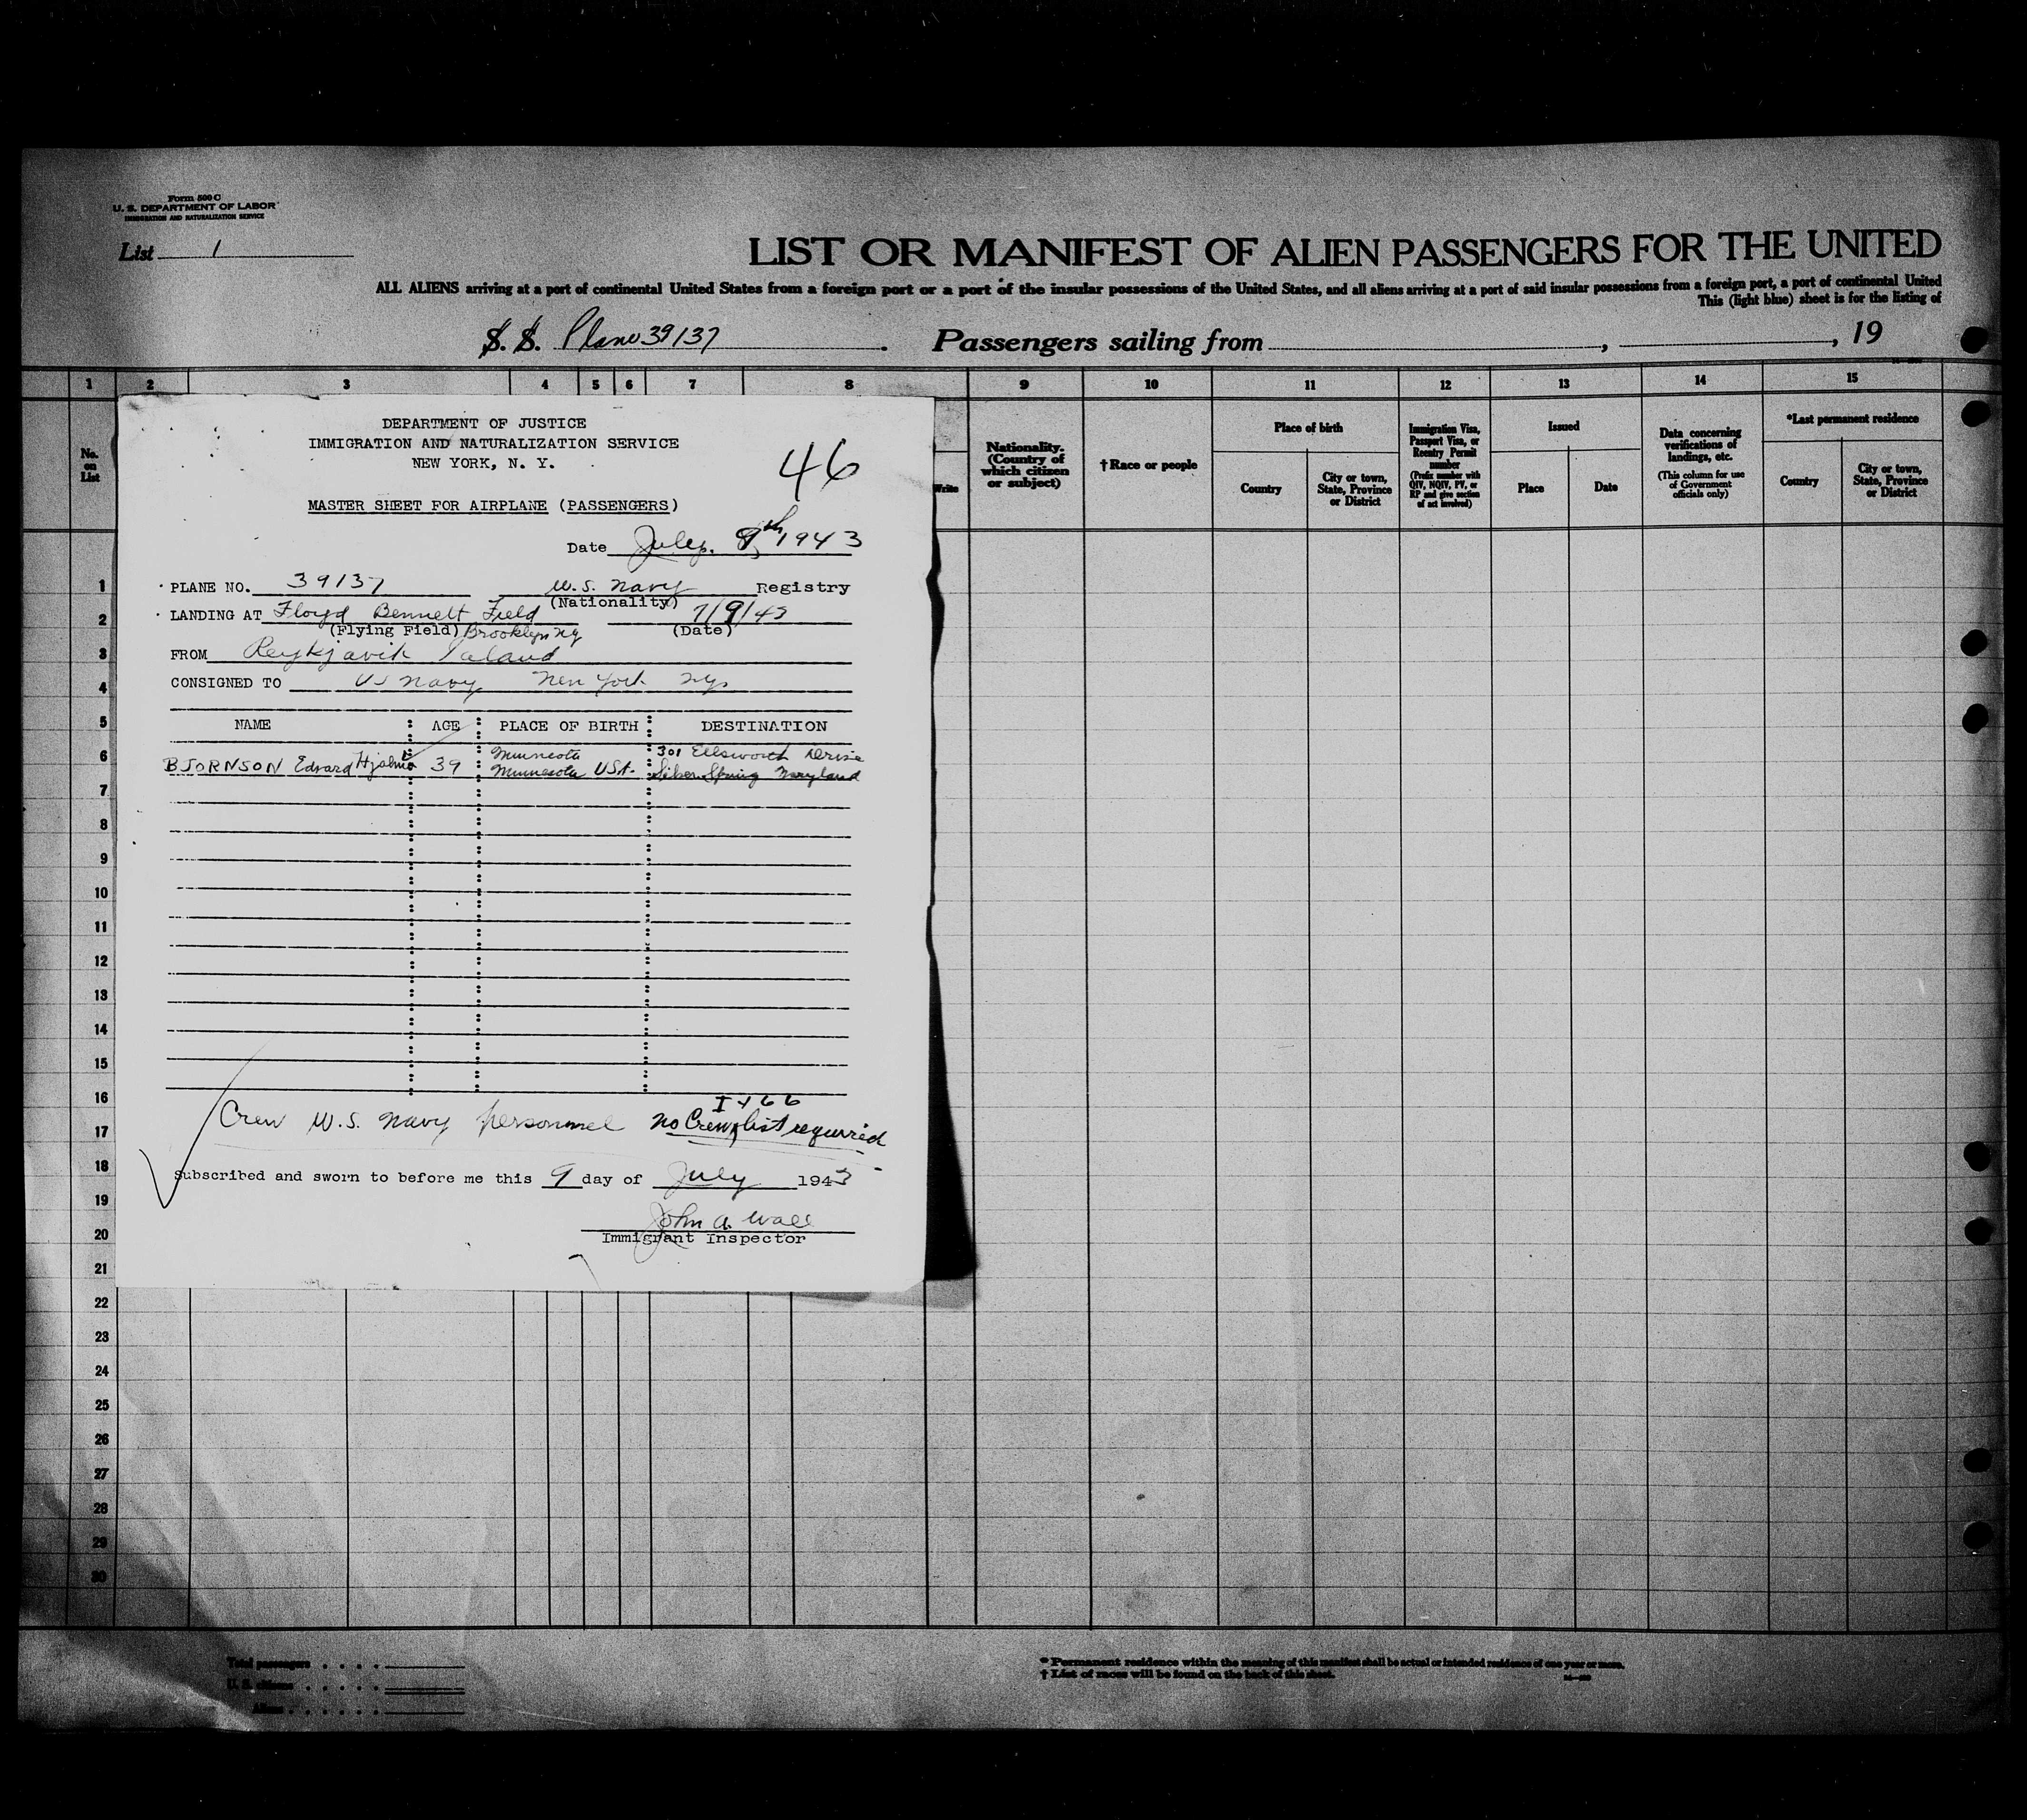 Form 500 C
U. S. DEPARTMENT OF LABOR
IMMIGRATION AND NATURALIZATION SERVICE
List 1
LIST OR MANIFEST OF ALIEN PASSENGERS FOR THE UNITED
ALL ALIENS arriving at a port of continental United States from a foreign port or a port of the insular possessions of the United States, and all aliens arriving at a port of said insular possessions from a foreign port, a port of continental United
This (light blue) sheet is for the listing of
S. S. Plane 39137 . Passengers sailing from , , 19
1 2 3 4 5 6 7 8 9 10 11 12 13 14 15
No. on List
Write
Nationality. (Country of which citizen or subject)
† Race or people
Place of birth
Country
City or town, State, Province or District
Immigration Visa, Passport Visa, or Reentry Permit number
(Prefix number with QIV, NQIV, PV, or RP and give section of act involved)
Issued
Place
Date
Data concerning verifications of landings, etc.
(This column for use of Government officials only)
*Last permanent residence
Country
City or town, State, Province or District
DEPARTMENT OF JUSTICE
IMMIGRATION AND NATURALIZATION SERVICE
NEW YORK, N. Y.
46
MASTER SHEET FOR AIRPLANE (PASSENGERS)
Date July. 9th 1943
PLANE NO. 39137 U.S. Navy Registry
(Nationality)
LANDING AT Floyd Bennett Field 7/9/43
(Flying Field) Brooklyn NY (Date)
FROM Reykjavik Iceland
CONSIGNED TO US Navy New York NY
NAME AGE PLACE OF BIRTH DESTINATION
Minneota 301 Ellsworth Drive
BJORNSON Edvard Hjalmar 39 Minnesota USA. Silver Spring Maryland
I 466
Crew U.S. Navy personnel no Crew list required
Subscribed and sworn to before me this 9 day of July 1943
John A. Wall
Immigrant Inspector
1
2
3
4
5
6
7
8
9
10
11
12
13
14
15
16
17
18
19
20
21
22
23
24
25
26
27
28
29
30
Total passengers . . . .
U. S. citizens . . . . .
Aliens . . . . . .
* Permanent residence within the meaning of this manifest shall be actual or intended residence of one year or more.
† List of races will be found on the back of this sheet.